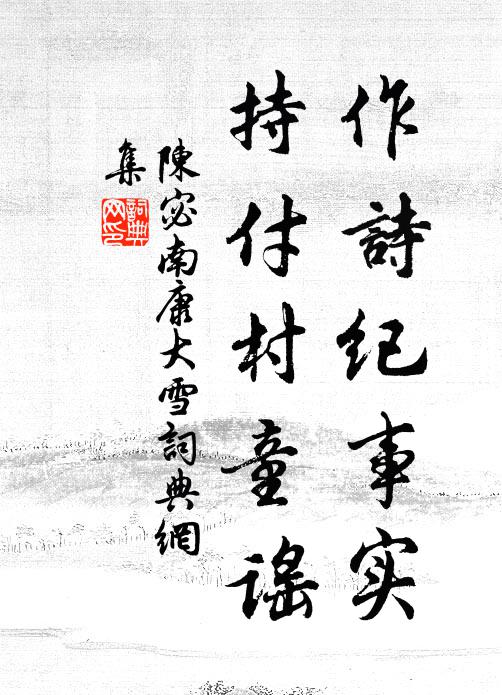 作詩纪事实
持付村童谣
陳宓南康大雪詞典網
集
詞典
网印